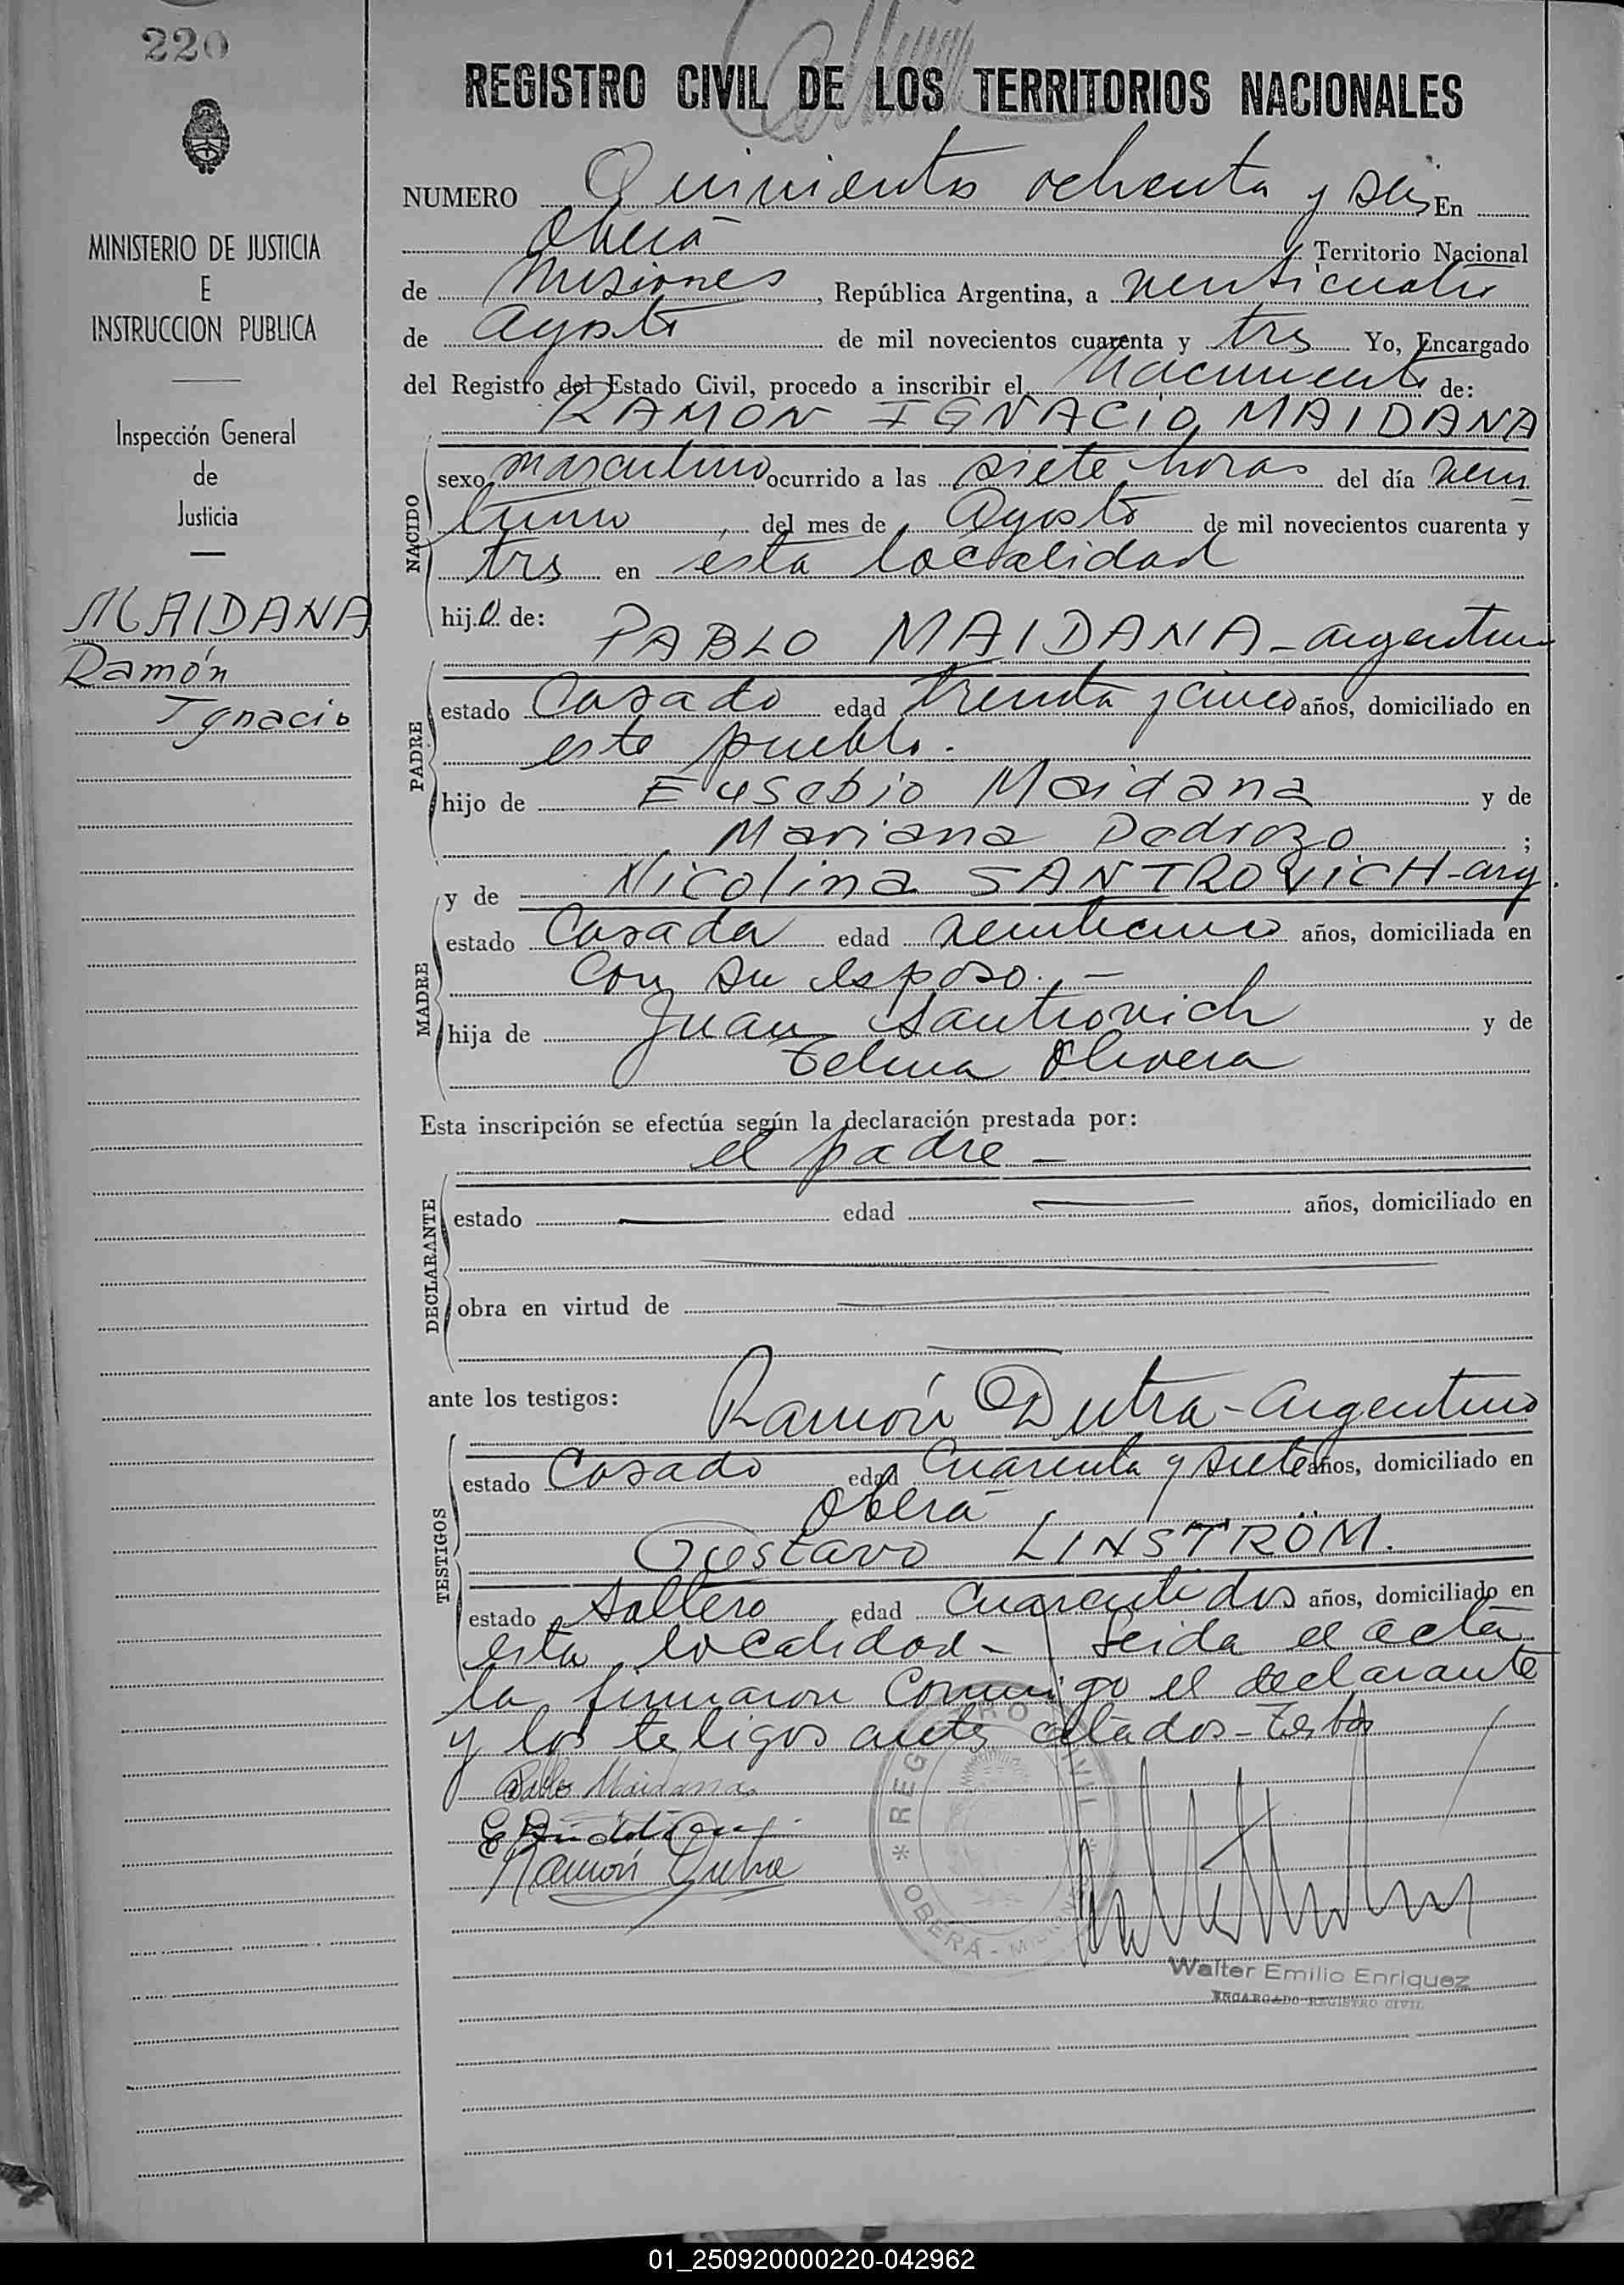 220
MINISTERIO DE JUSTICIA
E
INSTRUCCION PUBLICA
Inspección General
de
Justicia
MAIDANA
Ramón
Ignacio
REGISTRO CIVIL DE LOS TERRITORIOS NACIONALES
NUMERO Quinientos ochenta y seis En
Oberá Territorio Nacional
de Misiones, República Argentina, a venticuatro
de Agosto de mil novecientos cuarenta y tres Yo, Encargado
del Registro del Estado Civil, procedo a inscribir el Nacimiento de:
RAMON IGNACIO MAIDANA
NACIDO
sexo masculino ocurrido a las siete horas del día ven
tiuno del mes de Agosto de mil novecientos cuarenta y
tres en esta localidad
hijo de:
PABLO MAIDANA - argentino
PADRE
estado Casado edad treinta y cinco años, domiciliado en
este pueblo.
hijo de Eusebio Maidana y de
Mariana Pedrozo ;
y de Nicolina SANTROVICH - arg.
MADRE
estado Casada edad años, domiciliada en
Con su esposo. -
hija de Juan Santrovich y de
Telma Olivera
Esta inscripción se efectúa según la declaración prestada por:
el padre -
DECLARANTE
estado edad años, domiciliado en
obra en virtud de
ante los testigos:
Ramón Dutra - Argentino
TESTIGOS
estado Casado edad Cuarenta y siete años, domiciliado en
Oberá
Gustavo LINSTRÖM.
estado Soltero edad Cuarentidos años, domiciliado en
esta localidad - Leida el acta
la firmaron Conmigo el declarante
y los testigos antes citados -
Pablo Maidana
Ramón Dutra
* REGISTRO CIVIL *
OBERÁ - MISIONES
Walter Emilio Enriquez
ENCARGADO REGISTRO CIVIL
01_250920000220-042962